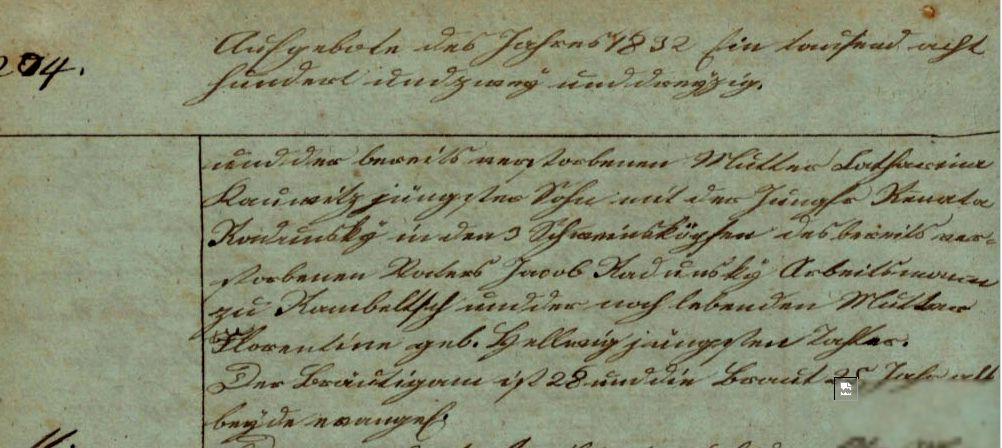 204.
Aufgebote des Jahres 1832 Ein tausend acht
hundert und zwey und dreyzig.
und der bereits verstorbenen Mutter Catharina
Kauwitz jüngster Sohn mit der Jungfr Renata
Radunsky in den 3 Schweinsköpfen des bereits ver-
storbenen Vaters Jacob Radunsky Arbeitsmann
zu Rambeltsch und der noch lebenden Mutter
Florentine geb. Hellwig jüngsten Tochter.
Der Bräutigam ist 28 und die Braut 25 Jahr alt
beyde evangel.